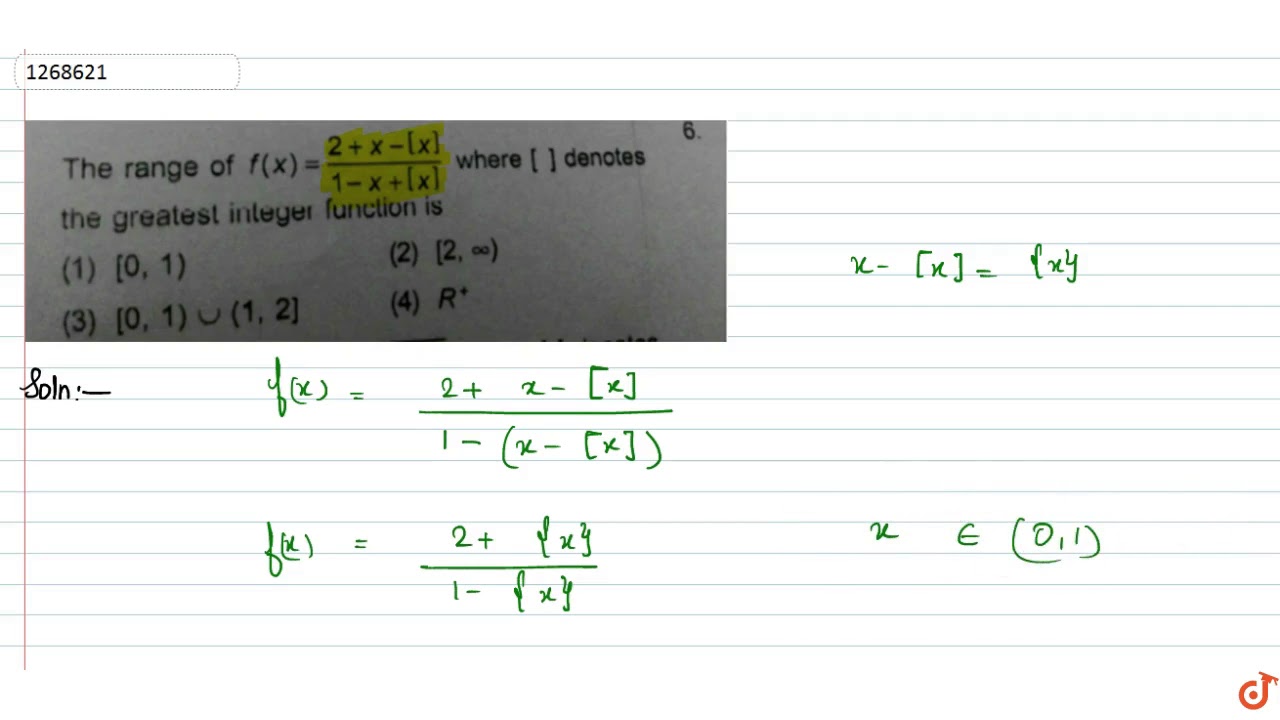 1268621
6.
The range of f(x) = \frac{2 + x - [x]}{1 - x + [x]} where [ ] denotes
the greatest integer function is
(1) [0, 1) (2) [2, ∞)
(3) [0, 1) ∪ (1, 2] (4) R⁺
x - [x] = {x}
Soln:— f(x) = \frac{2 + x - [x]}{1 - (x - [x])}
f(x) = \frac{2 + {x}}{1 - {x}} x ∈ (0, 1)